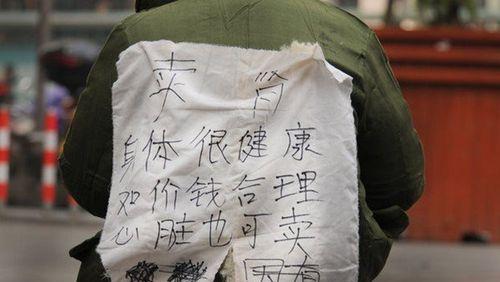 卖肾
身体很健康
如价钱合理
心脏也可卖
因有